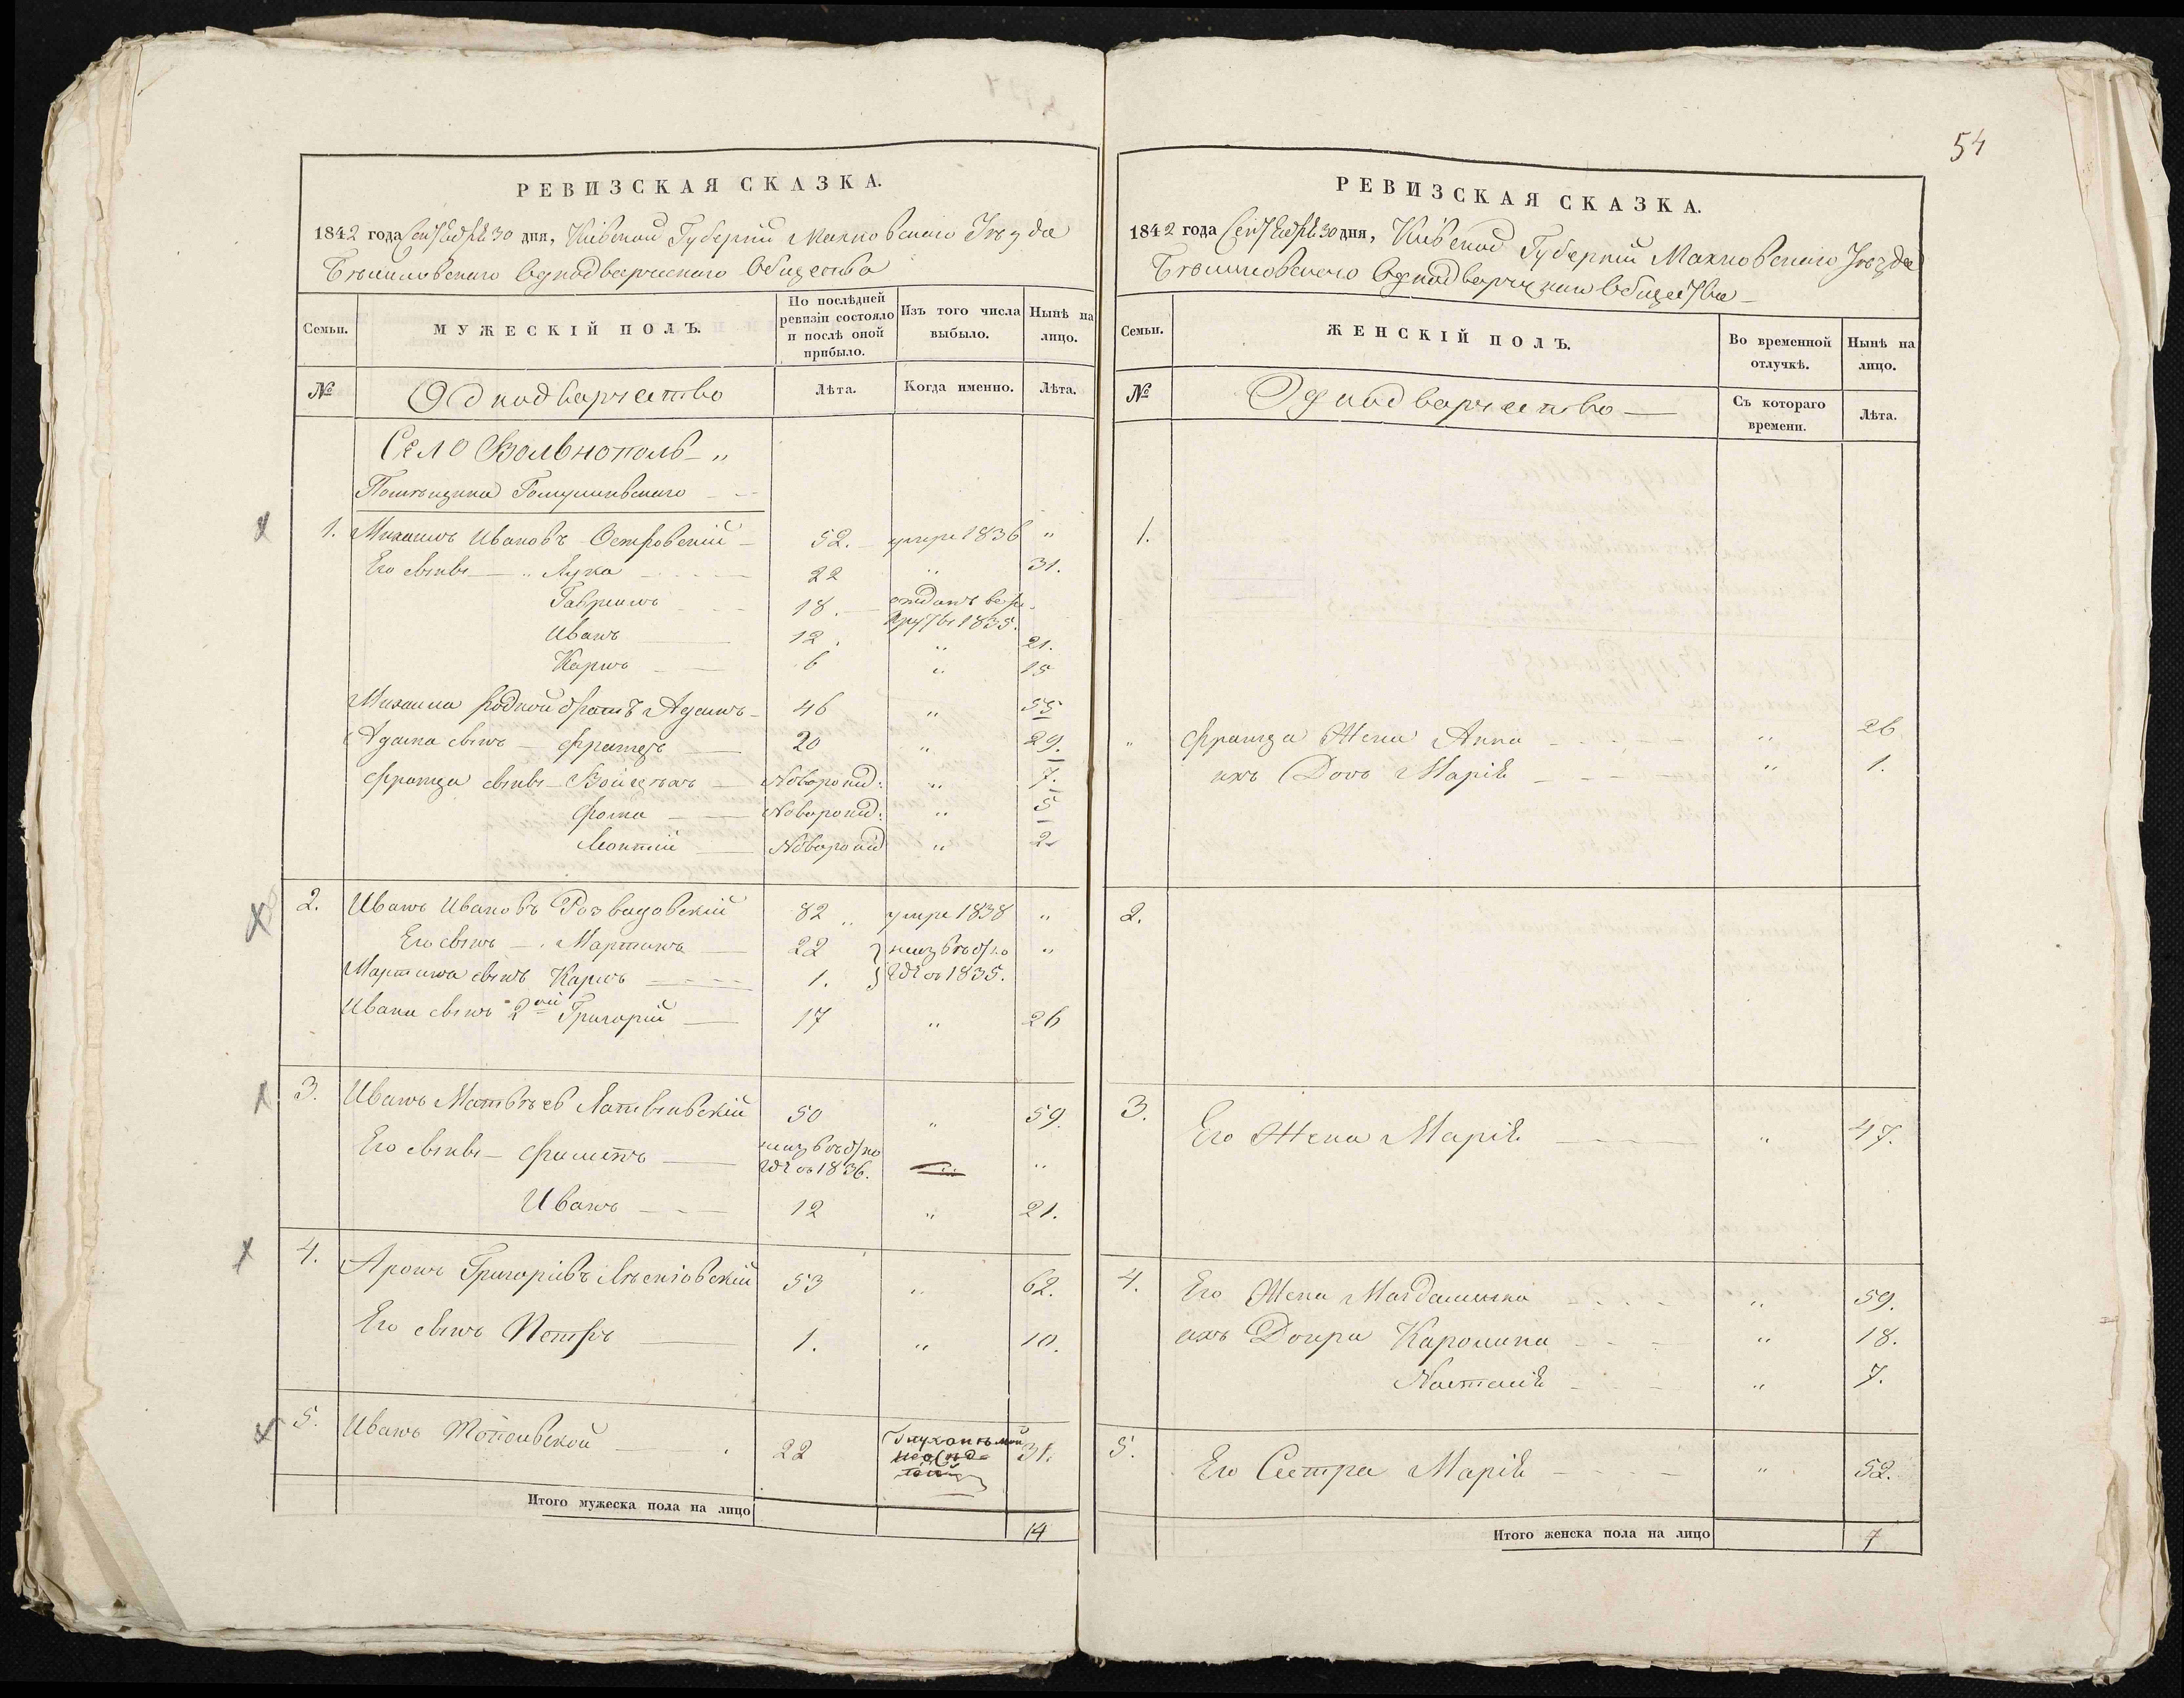 54
РЕВИЗСКАЯ СКАЗКА.
1842 года Сентября 30 дня, Кіевской Губерніи Махновскаго Уѣзда
Однодворческаго Общества
Семьи.
МУЖЕСКІЙ ПОЛЪ.
По послѣдней ревизіи состояло и послѣ оной прибыло.
Изъ того числа выбыло.
Нынѣ на лицо.
№
Однодворчество
Лѣта.
Когда именно.
Лѣта.
Село Вольнополь "
Помѣщика
1. Михаилъ Ивановъ Островскій 52. умре 1836 "
Его сыны Лука 22 " 31.
Гавріилъ 18. отданъ в рекруты 1835.
Иванъ 12. " 21.
Карлъ 6 " 15
Михаила родной братъ Адамъ 46 " 55
Адама сынъ Францъ 20 " 29.
Франца сыны Войцѣхъ Новорожд: " 7.
Фома Новорожд: " 5
Леонтій Новорожд " 2
2. Иванъ Ивановъ Розвадовскій 82 умре 1838 "
Его сынъ Мартинъ 22 неизвѣстно "
Мартина сынъ Карлъ 1. гдѣ съ 1835.
Ивана сынъ 2ой Григорій 17 " 26
3. Иванъ Матвѣевъ 50 " 59.
Его сыны неизвѣстно гдѣ съ 1836. "
Иванъ 12 " 21.
4. Григоріевъ 53 " 62.
Его сынъ Петръ 1. " 10.
5. Иванъ 22 31.
Итого мужеска пола на лицо 14
РЕВИЗСКАЯ СКАЗКА.
1842 года Сентября 30 дня, Кіевской Губерніи Махновскаго Уѣзда
Общества
Семьи.
ЖЕНСКІЙ ПОЛЪ.
Во временной отлучкѣ.
Нынѣ на лицо.
№
Однодворчество
Съ котораго времени.
Лѣта.
1.
" Франца Жена Анна " 26
ихъ Дочь Марія " 1.
2.
3. Его Жена Марія " 47.
4. Его Жена Магдалина " 59.
ихъ Дочри Каролина " 18.
Наталія " 7.
5. Его Сестра Марія " 52.
Итого женска пола на лицо 7